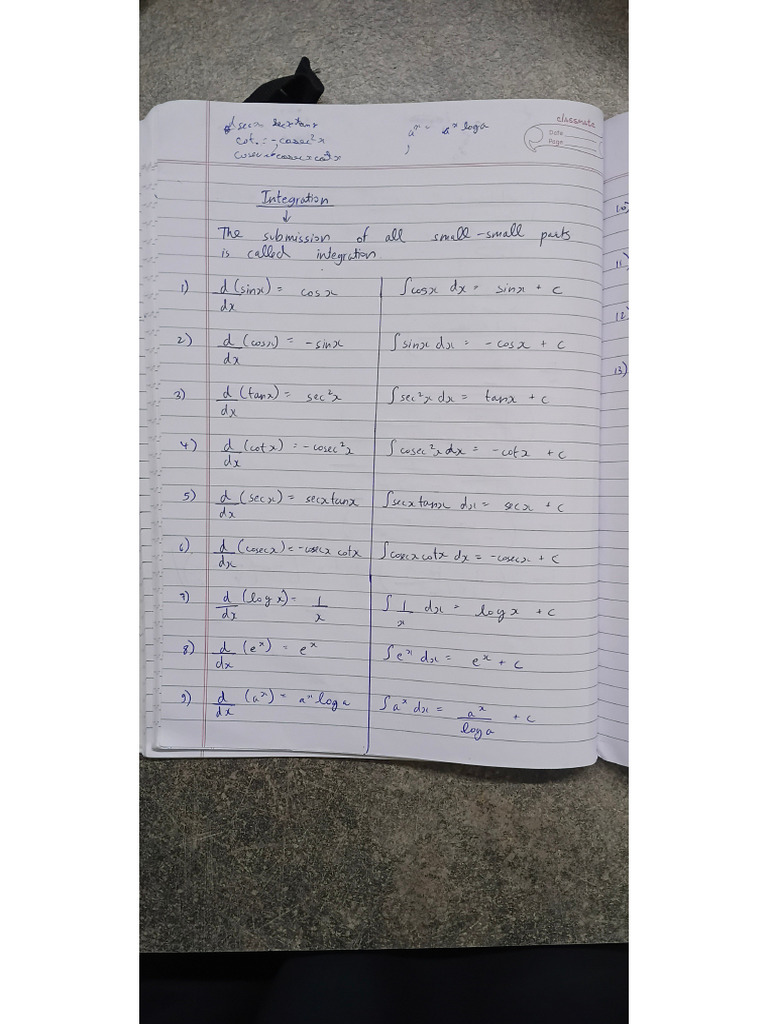 secx secxtanx
cot = -cosec²x
cosecx cosecxcotx
aˣ = aˣ loga
;
classmate
Date
Page
Integration
↓
The submission of all small-small parts
is called integration
1) d/dx (sinx) = cosx | ∫cosx dx = sinx + c
2) d/dx (cosx) = -sinx | ∫sinx dx = -cosx + c
3) d/dx (tanx) = sec²x | ∫sec²x dx = tanx + c
4) d/dx (cotx) = -cosec²x | ∫cosec²x dx = -cotx + c
5) d/dx (secx) = secxtanx | ∫secxtanx dx = secx + c
6) d/dx (cosecx) = -cosecx cotx | ∫cosecxcotx dx = -cosecx + c
7) d/dx (logx) = 1/x | ∫1/x dx = logx + c
8) d/dx (eˣ) = eˣ | ∫eˣ dx = eˣ + c
9) d/dx (aˣ) = aˣ loga | ∫aˣ dx = aˣ/loga + c
10)
11)
12)
13)